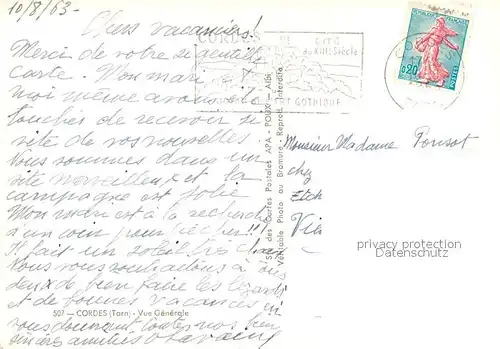 10/8/63-
Chers vacanciers!
Merci de votre si gentille
carte. Mon mari et
moi même avons été
touchés de recevoir si
vite de vos nouvelles
Nous sommes dans un
site merveilleux et la
campagne est jolie
Mon mari est à la recherche
d'un coin pour pêcher!!!
Il fait un soleil très chaud
Nous vous souhaitons à vous
deux de bien faire les lézards
et de bonnes vacances en
vous donnant toutes nos bien
sincères amitiés
507 — CORDES (Tarn) - Vue Générale
Sté des Cartes Postales APA - POUX - Albi
Véritable Photo au Bromure - Reprod. Interdite
CORDES
CITÉ
du XIIIe Siècle
ART GOTHIQUE
REPUBLIQUE FRANÇAISE
0,20
POSTES
Monsieur Madame Ponsot
chez
Etch
privacy protection
Datenschutz